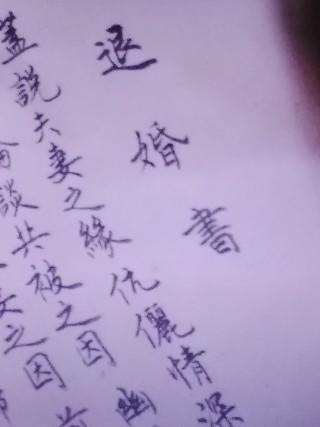 退婚書
蓋說夫妻之緣伉儷情深
談共被之因幽
之因